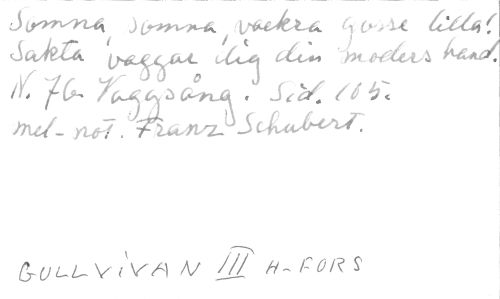 Somna, somna, vackra gosse lilla!
Sakta vaggar dig din moders hand.
N. 76. Vaggsång. Sid. 105.
mel-not. Franz Schubert.
GULLVIVAN III H-FORS